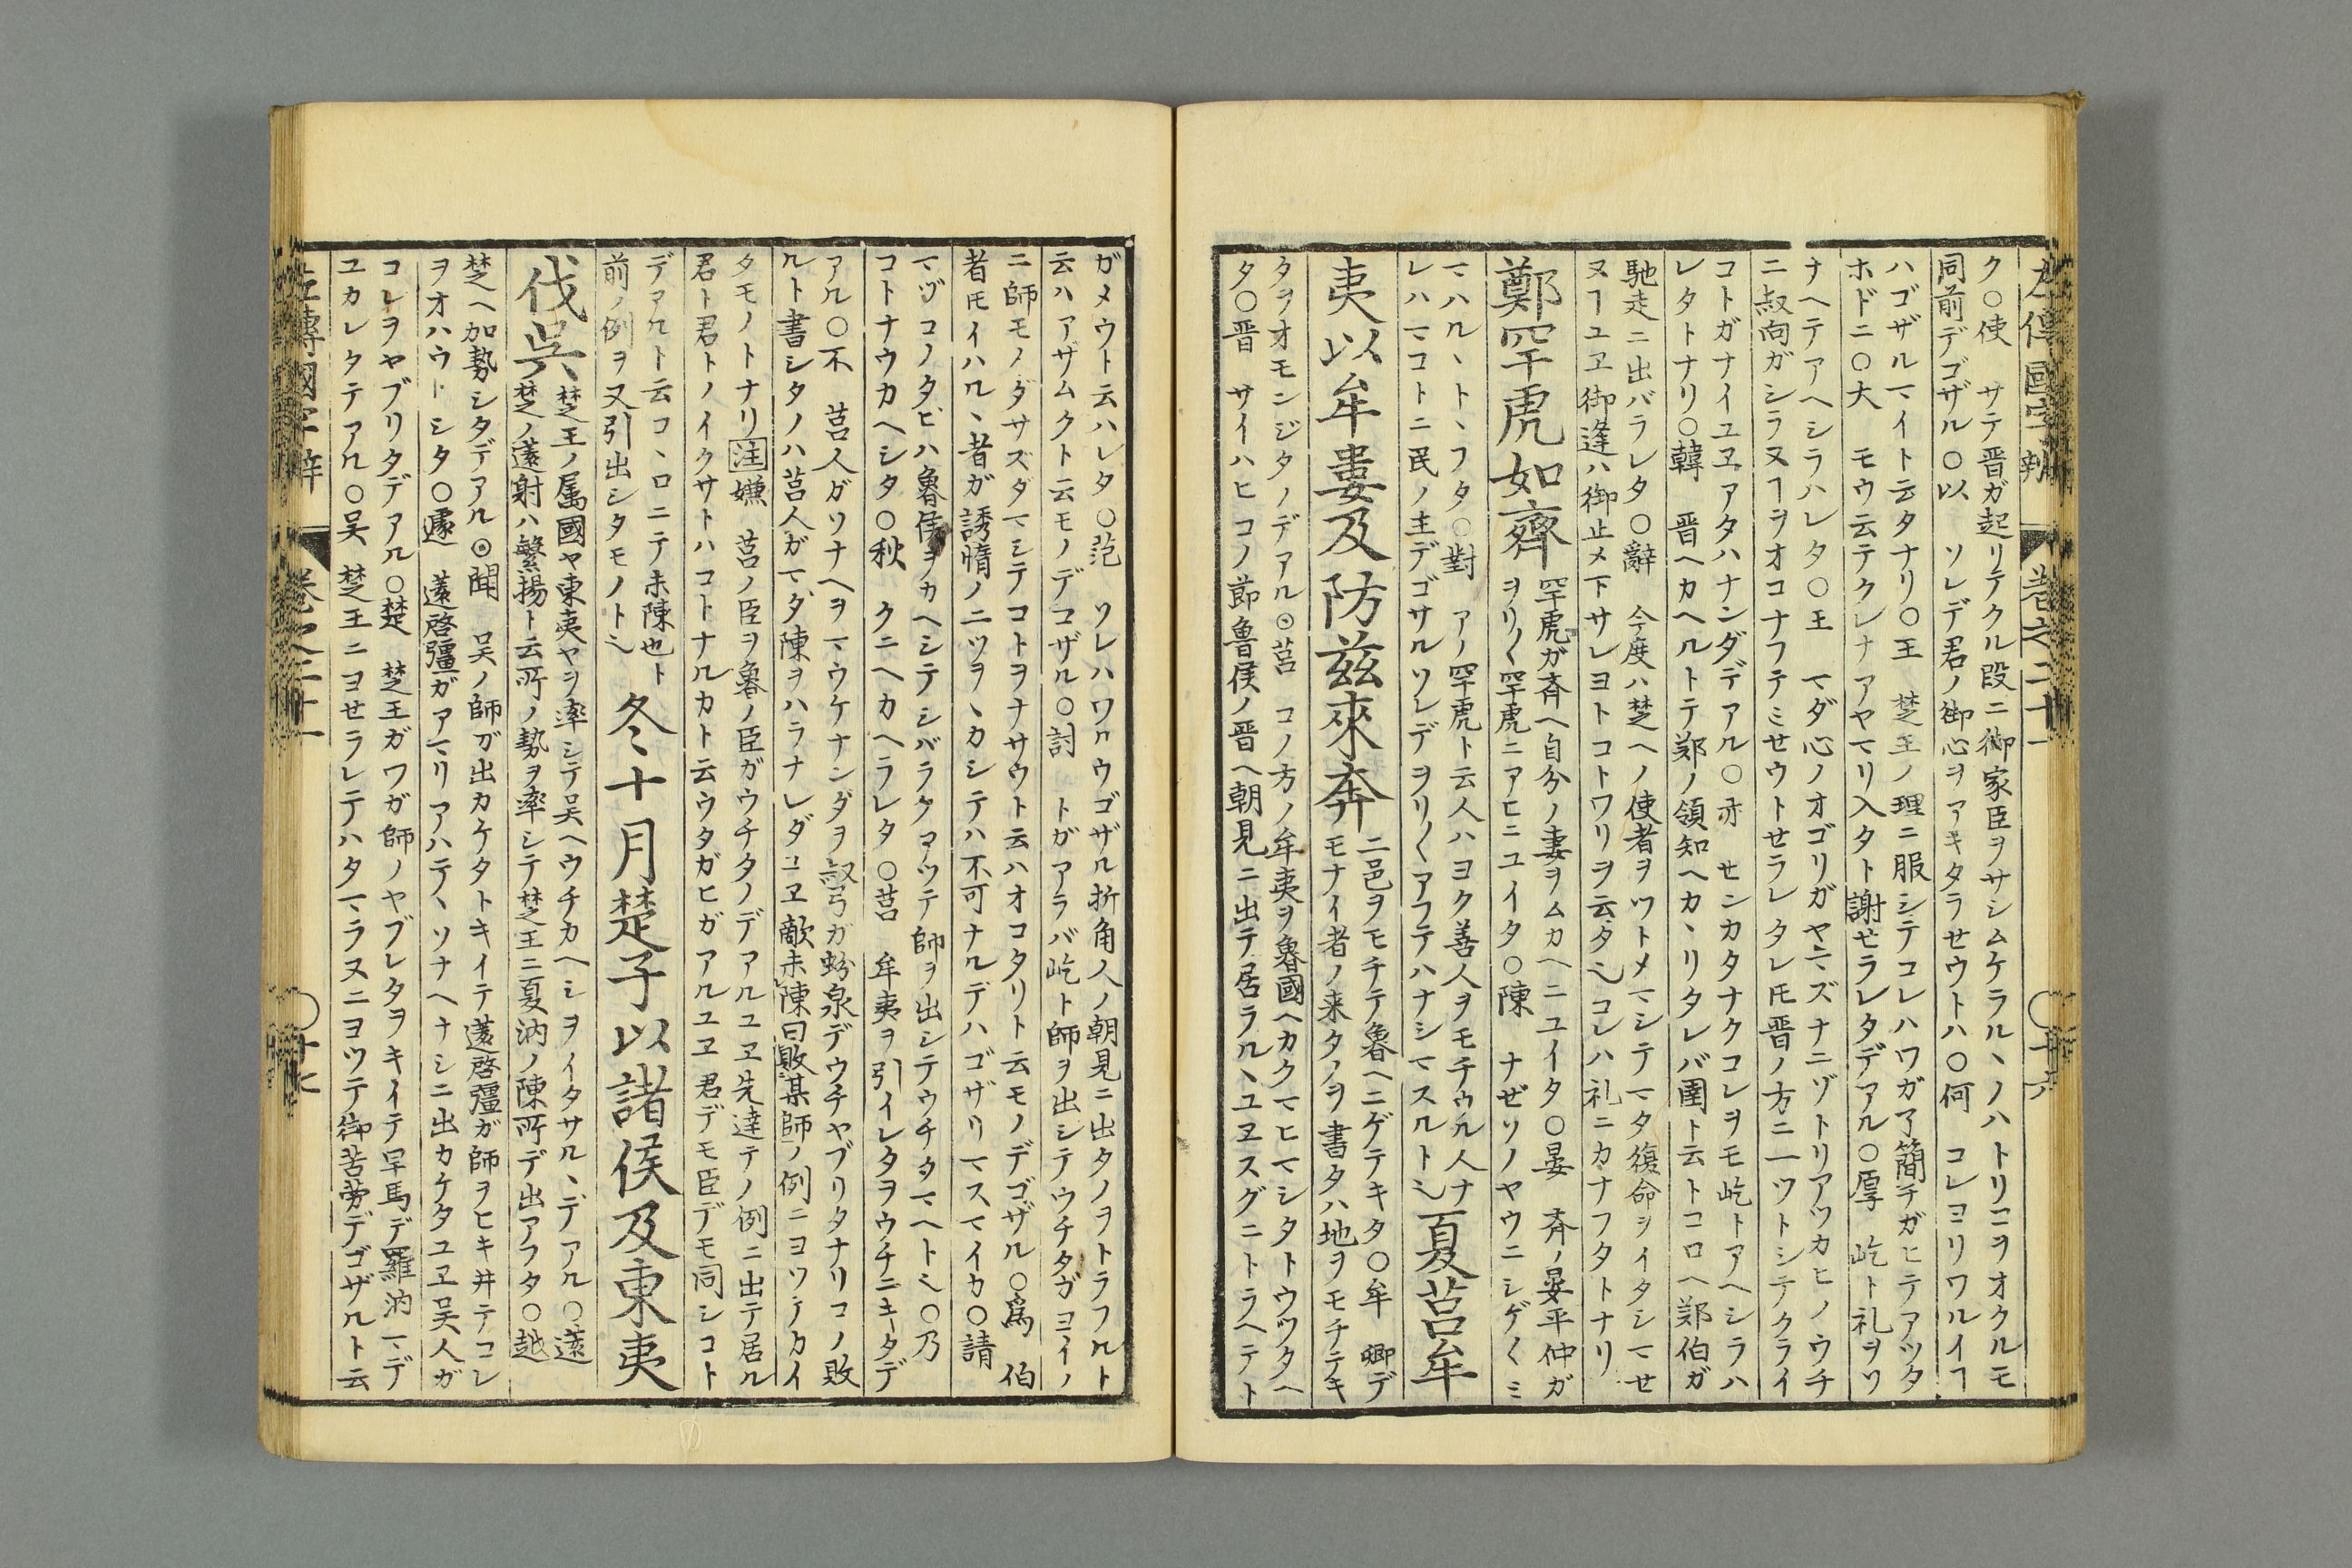 左傳國字辨 巻之二十一 〇十六
ク〇使 サテ晋ガ起リテクル段ニ御家臣ヲサシムケラル丶ノハトリコヲオクルモ
同前デゴザル〇以 ソレデ君ノ御心ヲアキタラせウトハ〇何 コレヨリワルイヿ
ハゴザルマイト云タナリ〇王 楚王ノ理ニ服シテコレハワガ了簡チガヒテアツタ
ホドニ〇大 モウ云テクレナアヤマリ入タト謝せラレタデアル〇厚 屹ト礼ヲソ
ナヘテアヘシラハレタ〇王 マダ心ノオゴリガヤマズナニゾトリアツカヒノウチ
ニ叔向ガシラヌヿヲオコナフテミせウトせラレタレ𪜈晋ノ方ニ一ツトシテクライ
コトガナイユヱアタハナンダデアル〇亦 せンカタナクコレヲモ屹トアヘシラハ
レタトナリ〇韓 晋ヘカヘルトテ郑ノ領知ヘカ丶リタレバ圉ト云トコロヘ郑伯ガ
馳走ニ出バラレタ〇辭 今度ハ楚ヘノ使者ヲツトメマシテマタ復命ヲイタシマせ
ヌヿユヱ御逢ハ御止メ下サレヨトコトワリヲ云タ𪜀コレハ礼ニカナフタトナリ
鄭罕虎如齊
罕虎ガ斉ヘ自分ノ妻ヲムカヘニユイタ〇晏 斉ノ晏平仲ガ
ヲリ〱罕虎ニアヒニユイタ〇陳 ナぜソノヤウニシゲ〱ミ
マハル丶ト丶フタ〇對 アノ罕虎ト云人ハヨク善人ヲモチウル人ナ
レハマコトニ民ノ主デゴサルソレデヲリ〱アフテハナシマスルト𪜀
夏莒牟
夷以牟婁及防茲來奔
二邑ヲモチテ魯ヘニゲテキタ〇牟 卿デ
モナイ者ノ来タノヲ書タハ地ヲモチテキ
タヲオモンジタノデアル◎莒 コノ方ノ牟夷ヲ魯國ヘカクマヒマシタトウツタヘ
タ〇晋 サイハヒコノ節魯侯ノ晋ヘ朝見ニ出テ居ラル丶ユヱスグニトラヘテト
ガメウト云ハレタ〇范 ソレハワルウゴザル折角人ノ朝見ニ出タノヲトラフルト
云ハアザムクト云モノデコザル〇討 トガアラバ屹ト師ヲ出シテウチタガヨイノ
ニ師モノダサズダマシテコトヲナサウト云ハオコタリト云モノデゴザル〇爲 伯
者𪜈イハル丶者ガ誘惰ノ二ツヲ丶カシテハ不可ナルデハゴザリマスマイカ〇請
マヅコノタビハ魯侯ヲカヘシテシバラクマツテ師ヲ出シテウチタマヘト𪜀〇乃
コトナウカヘシタ〇秋 クニヘカヘラレタ〇莒 牟夷ヲ引イレタヲウチニキタデ
アル〇不 莒人ガソナヘヲマウケナンダヲ叔弓ガ蚡泉デウチヤブリタナリコノ敗
ルト書シタノハ莒人ガマダ陳ヲハラナレダユヱ敵未陳曰敗某師ノ例ニヨツテカイ
タモノトナリ注嫌 莒ノ臣ヲ魯ノ臣ガウチタノデアルユヱ先達テノ例ニ出テ居ル
君ト君トノイクサトハコトナルカト云ウタガヒガアルユヱ君デモ臣デモ同シコト
デアルト云コ丶ロニテ未陳也ト
前ノ例ヲ又引出シタモノト𪜀
冬十月楚子以諸侯及東夷
伐吳
楚王ノ属國ヤ東夷ヤヲ率シテ吴ヘウチカヘシヲイタサル丶デアル〇薳
楚ノ薳射ハ繁揚ト云所ノ勢ヲ率シテ楚王ニ夏汭ノ陳所デ出アフタ〇越
楚ヘ加勢シタデアル◎聞 吴ノ師ガ出カケタトキイテ薳啓彊ガ師ヲヒキ井テコレ
ヲオハウトシタ〇遽 薳啓彊ガアマリアハテ丶ソナヘナシニ出カケタユヱ吴人ガ
コレヲヤブリタデアル〇楚 楚王ガワガ師ノヤブレタヲキイテ早馬デ羅汭マデ
ユカレタテアル〇吴 楚王ニヨせラレテハタマラヌニヨツテ御苦劳デゴザルト云
左傳國字辨 巻之二十一 〇十七